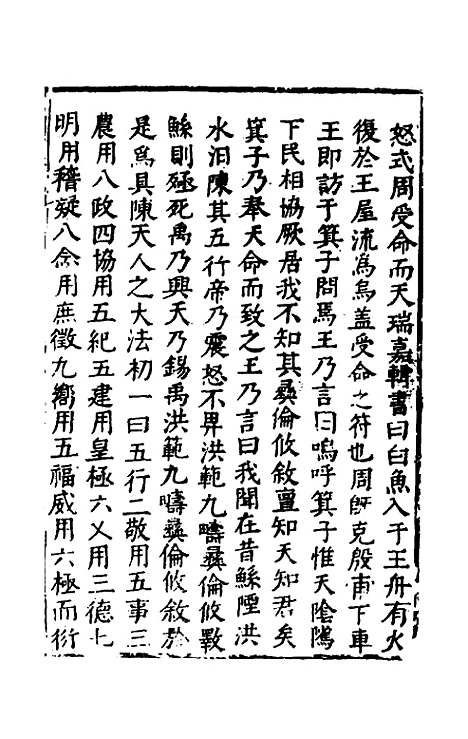 怒武周受命而天瑞嘉輯書曰白魚入于王舟有火
復於王屋流爲烏盖受命之符也周旣克殷甫下車
王即訪于箕子問焉王乃言曰嗚呼箕子惟天陰隲
下民相協厥居我不知其彞倫攸敘亶知天知君矣
箕子乃奉天命而致之王乃言曰我聞在昔鯀陻洪
水汨陳其五行帝乃震怒不畀洪範九疇彞倫攸斁
鯀則殛死禹乃興天乃錫禹洪範九疇彞倫攸敘於
是爲具陳天人之大法初一曰五行二敬用五事三
農用八政四協用五紀五建用皇極六乂用三德七
明用稽疑八念用庶徵九嚮用五福威用六極而衍